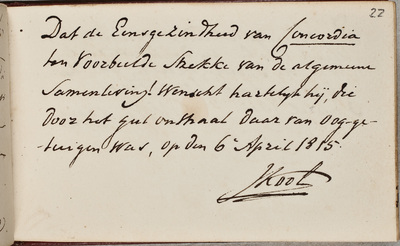 22
Dat de Eensgezindheid van Concordia
ten Voorbeelde Strekke van de algemeene
Samenleving! Wenscht hartelyk hij, die
door het gul onthaal daar van oog-ge-
tuigen was, op den 6e April 1815.
JKool